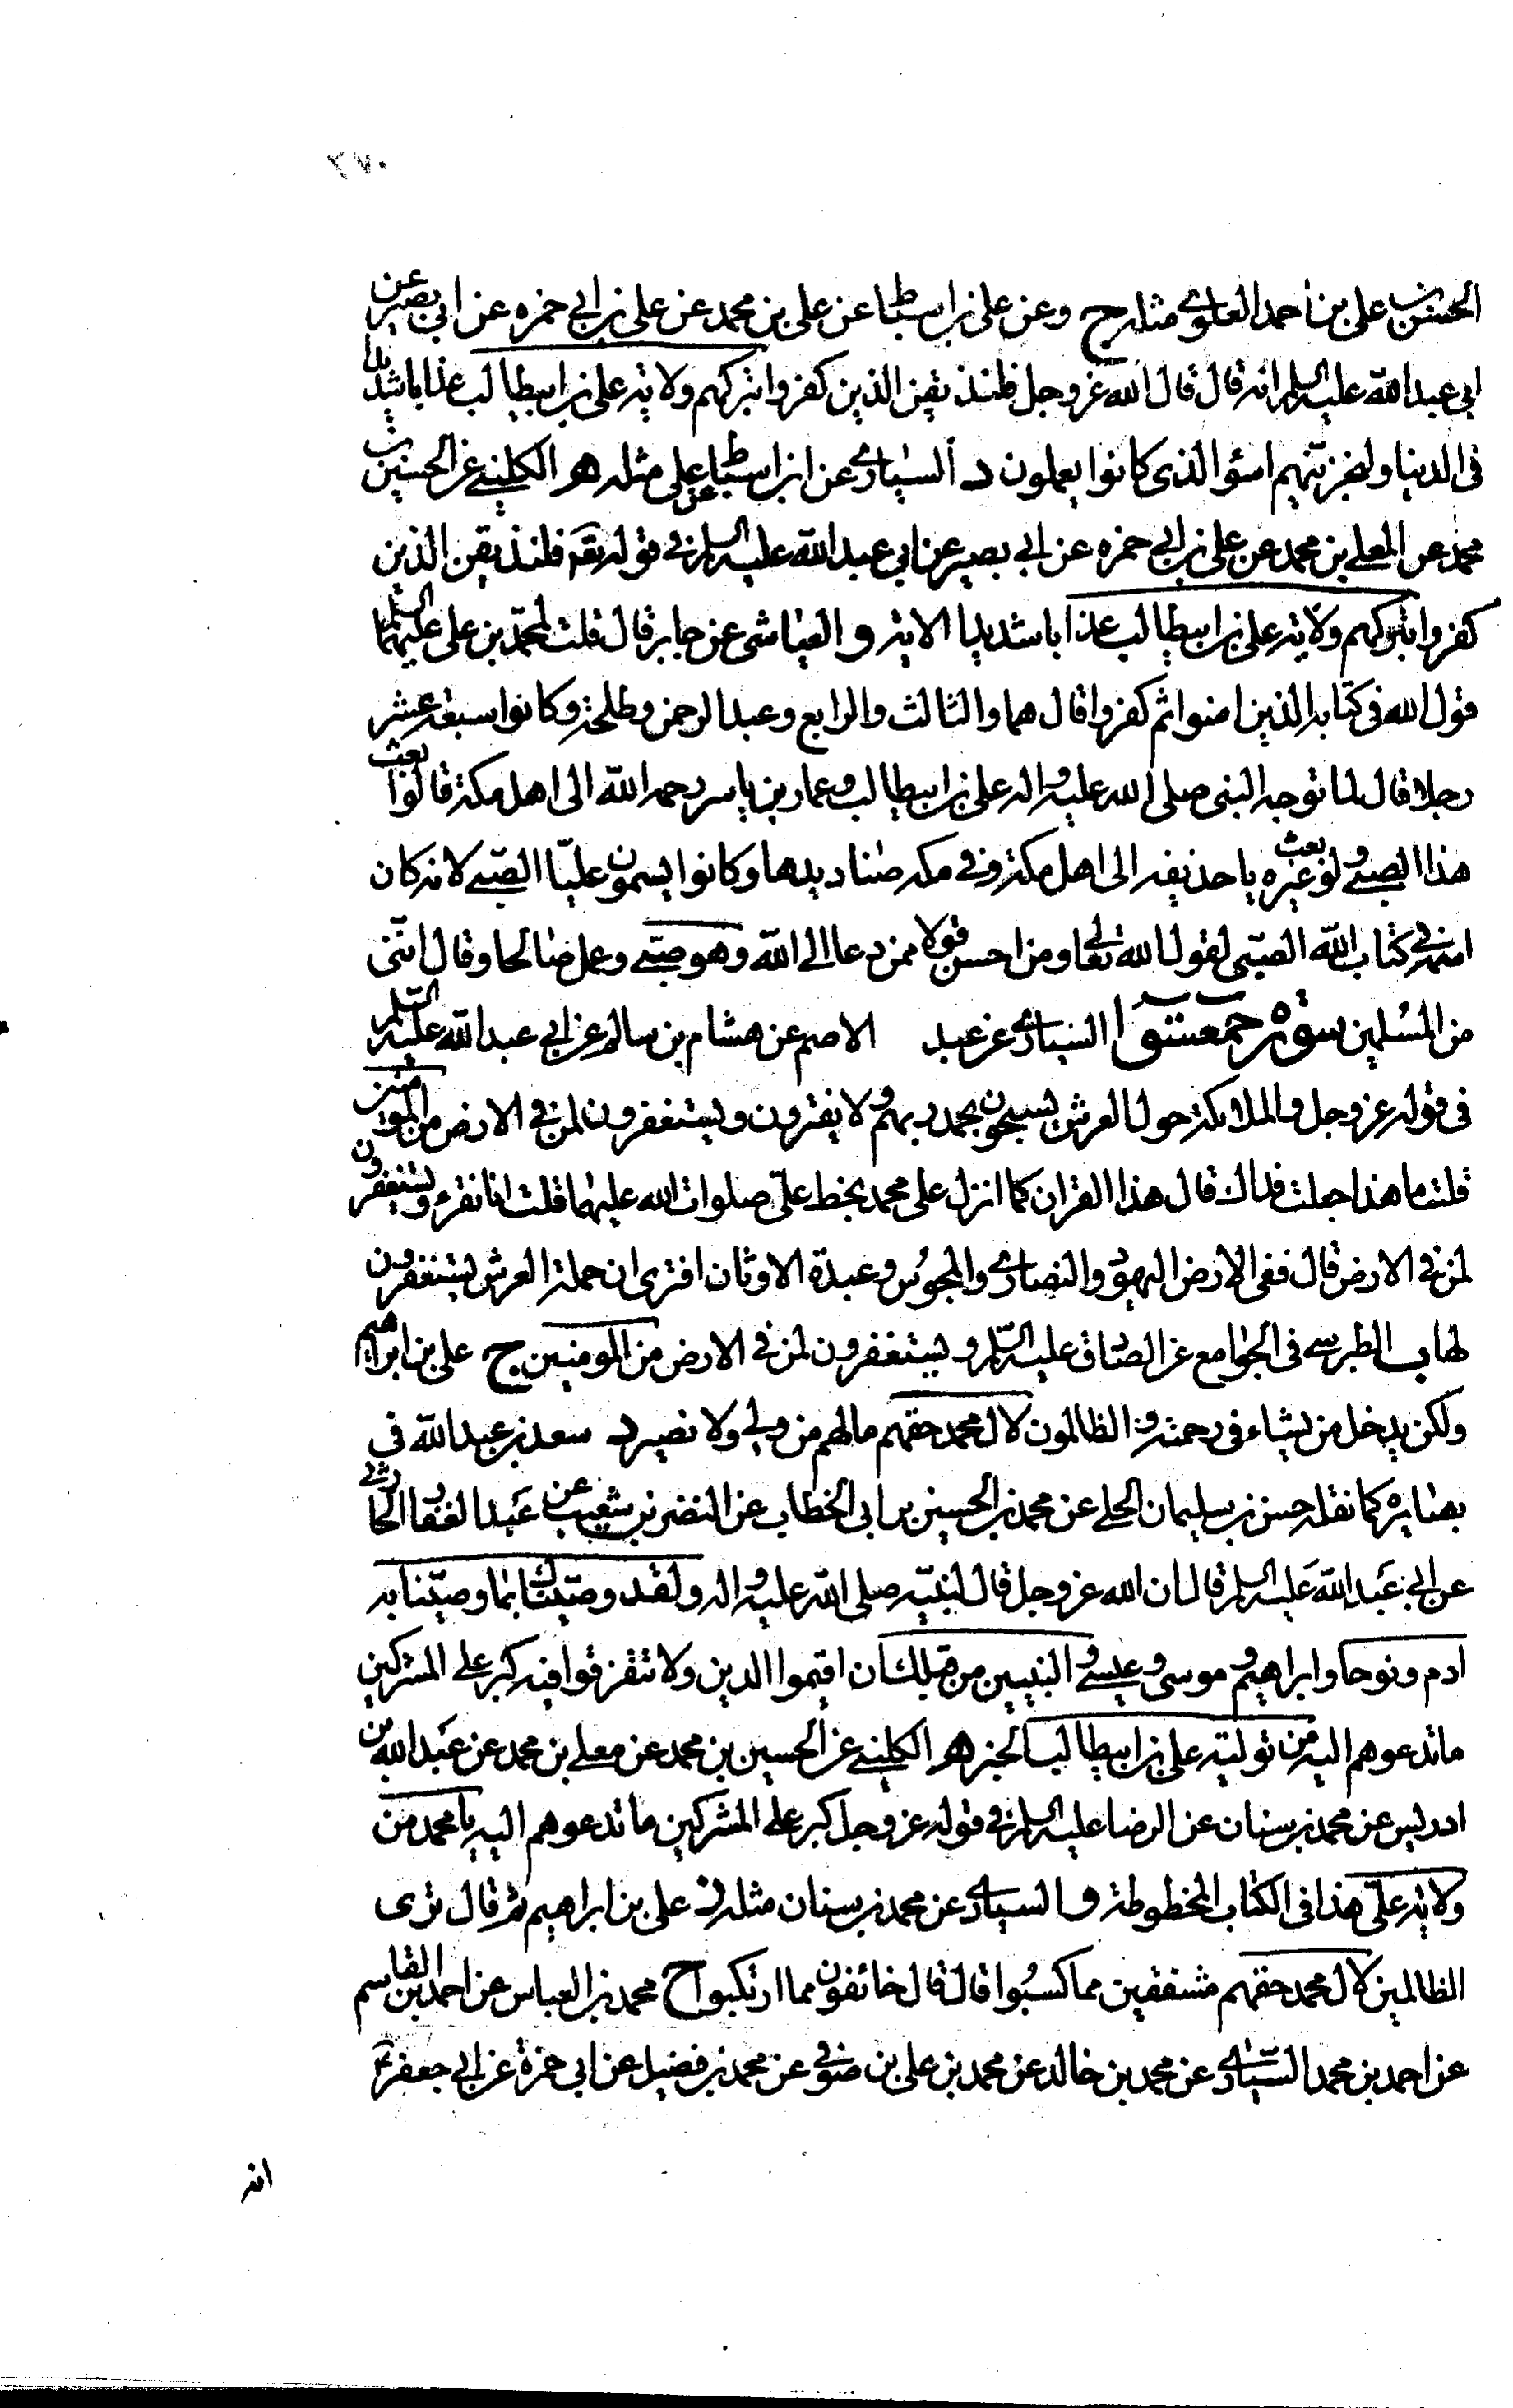 ٢٧٠
الحسين بن علي بن احمد العلوي مثله ج وعن علي بن اسباط عن علي بن محمد عن علي بن ابي حمزه عن ابي بصير عن
ابي عبد الله عليه السلم انه قال قال الله عز وجل فلنذيقن الذين كفروا بتركهم ولايته علي بن ابيطالب عذابا شديدا
في الدنيا ولنجزينهم اسوء الذي كانوا يعملون د السياري عن ابن اسباط عن علي مثله هـ الكليني عن الحسين بن
محمد عن المعلي بن محمد عن علي بن ابي حمزه عن ابي بصير عن ابي عبد الله عليه السلم في قوله تعم فلنذيقن الذين
كفروا بتركهم ولايته علي بن ابيطالب عذابا شديدا الاية و العياشي عن جابر قال قلت لمحمد بن علي عليهما السلم
قول الله في كتابه الذين امنوا ثم كفروا قال هما والثالث والرابع وعبد الرحمن وطلحة وكانوا سبعة عشر
رجلا قال لما توجه النبي صلى الله عليه واله علي بن ابيطالب وعمار بن ياسر رحمه الله الى اهل مكة قالوا بعث
هذا الصبي ولو بعث غيره يا حذيفه الى اهل مكة وفي مكه صناديدها وكانوا يسمون عليّا الصبي لانه كان
اسمه في كتاب الله الصبي لقول الله تعالى ومن احسن قولا ممن دعا الى الله وهو صبي وعمل صالحا وقال انني
من المسلمين سورة حمعسق ا السياري عن عبد الاصم عن هشام بن سالم عن ابي عبد الله عليه السلم
في قوله عز وجل والملائكة حول العرش يسبحون بحمد ربهم ولا يفترون ويستغفرون لمن في الارض من المؤمنين
قلت ما هذا جعلت فداك قال هذا القران كما انزل على محمد بخط علي صلوات الله عليهما قلت انا نقرء ويستغفرون
لمن في الارض قال ففي الارض اليهود والنصارى والمجوس وعبدة الاوثان افترى ان حملة العرش يستغفرون
لها ب الطبرسي في الجوامع عن الصادق عليه السلم ويستغفرون لمن في الارض من المومنين ج علي بن ابراهيم
ولكن يدخل من يشاء في رحمته والظالمون لال محمد حقهم مالهم من ولي ولا نصير د سعد بن عبد الله في
بصايره كما نقله حسن بن سليمان الحلي عن محمد بن الحسين بن ابي الخطاب عن النضر بن شعيب عن عبد الغفار الحارثي
عن ابي عبد الله عليه السلم قال ان الله عز وجل قال لنبيه صلى الله عليه واله ولقد وصيناك بما وصينا به
ادم ونوحا وابراهيم وموسى وعيسى والنبيين من قبلك ان اقيموا الدين ولا تتفرقوا فيه كبر على المشركين
ما تدعوهم اليه من تولية علي بن ابيطالب الخبر هـ الكليني عن الحسين بن محمد عن معلي بن محمد عن عبد الله بن
ادريس عن محمد بن سنان عن الرضا عليه السلم في قوله عز وجل كبر على المشركين ما تدعوهم اليه يا محمد من
ولاية علي هذا في الكتاب المخطوطة و السياري عن محمد بن سنان مثله ز علي بن ابراهيم ثم قال ترى
الظالمين لال محمد حقهم مشفقين مما كسبوا قال قال خائفون مما ارتكبوا ح محمد بن العباس عن احمد بن القاسم
عن احمد بن محمد السياري عن محمد بن خالد عن محمد بن علي بن صوفي عن محمد بن فضيل عن ابي حمزة عن ابي جعفر ع
انه